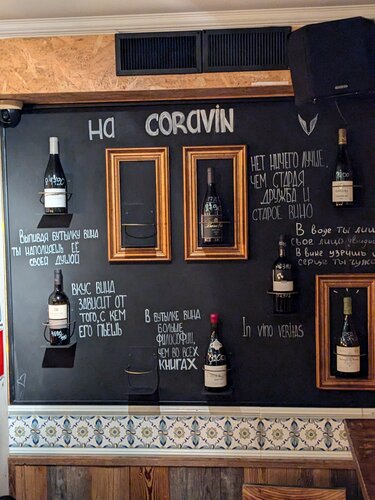 на CORAVIN
НЕТ НИЧЕГО ЛУЧШЕ,
ЧЕМ СТАРАЯ
ДРУЖБА И
СТАРОЕ ВИНО
Выпивая бутылку вина
ты наполняешь её
своей душой
В воде ты лиш
свое лицо увиди
В вине узришь
сердце
ВКУС ВИНА
ЗАВИСИТ ОТ
ТОГО, С КЕМ
ЕГО ПЬЁШЬ
В БУТЫЛКЕ ВИНА
БОЛЬШЕ
ФИЛОСОФИИ,
ЧЕМ ВО ВСЕХ
КНИГАХ
In vino veritas